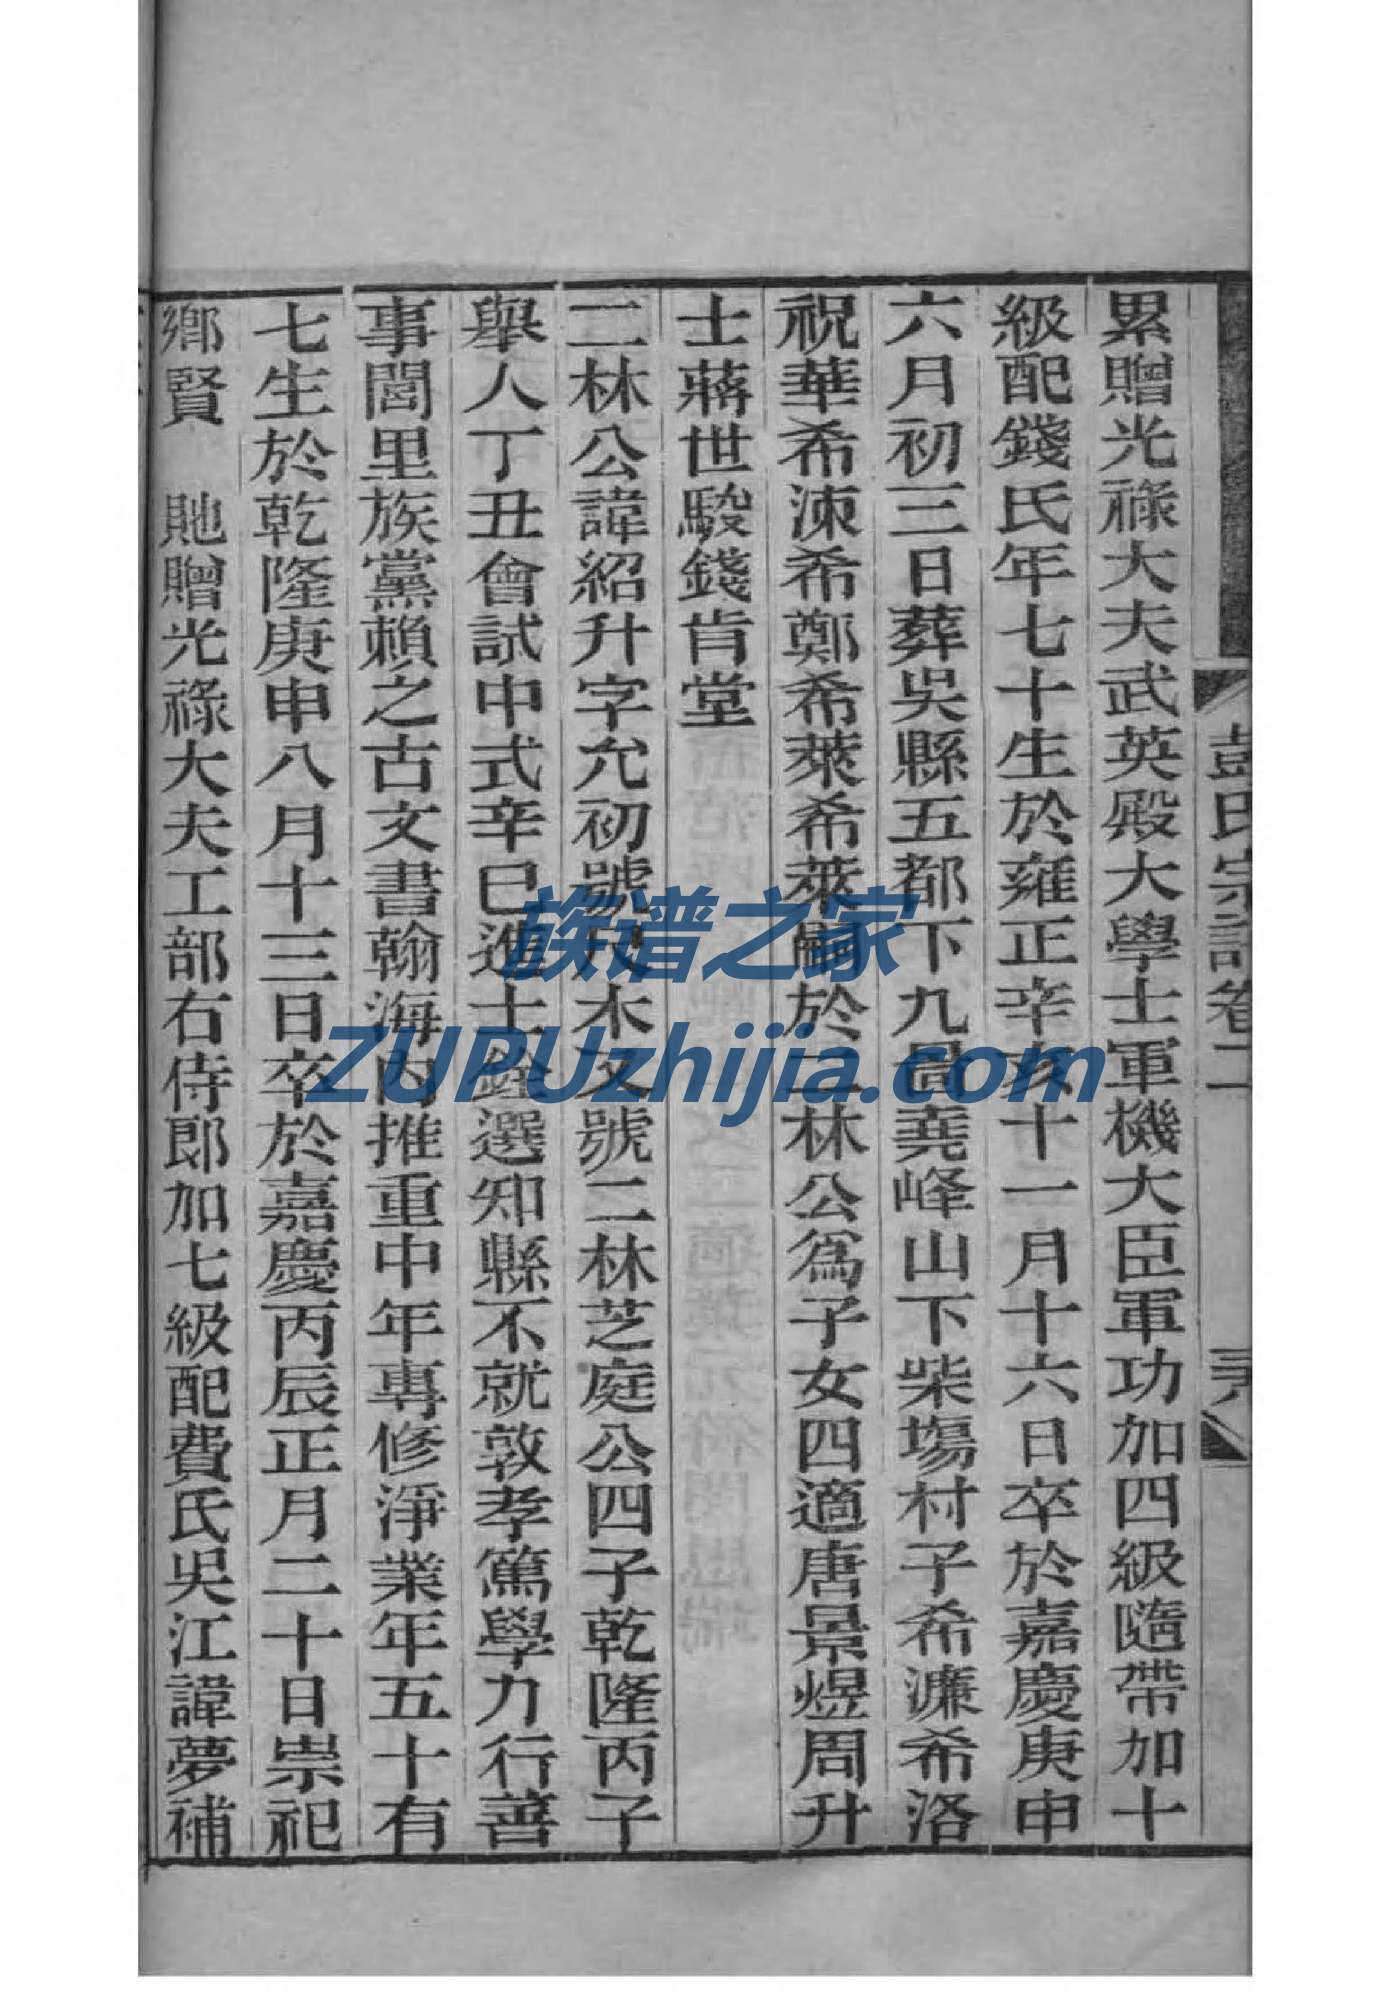 彭氏宗譜卷二
累贈光祿大夫武英殿大學士軍機大臣軍功加四級隨帶加十
級配錢氏年七十生於雍正辛亥十一月十六日卒於嘉慶庚申
六月初三日葬吳縣五都下九啚堯峰山下柴塲村子希濂希洛
祝華希涑希鄭希萊希萊嗣於二林公爲子女四適唐景煜周升
士蔣世駿錢肯堂
二林公諱紹升字允初號尺木又號二林芝庭公四子乾隆丙子
舉人丁丑會試中式辛巳進士銓選知縣不就敦孝篤學力行善
事閭里族黨賴之古文書翰海内推重中年專修淨業年五十有
七生於乾隆庚申八月十三日卒於嘉慶丙辰正月二十日崇祀
鄉賢 貤贈光祿大夫工部右侍郎加七級配費氏吳江諱夢補
族谱之家
ZUPUzhijia.com